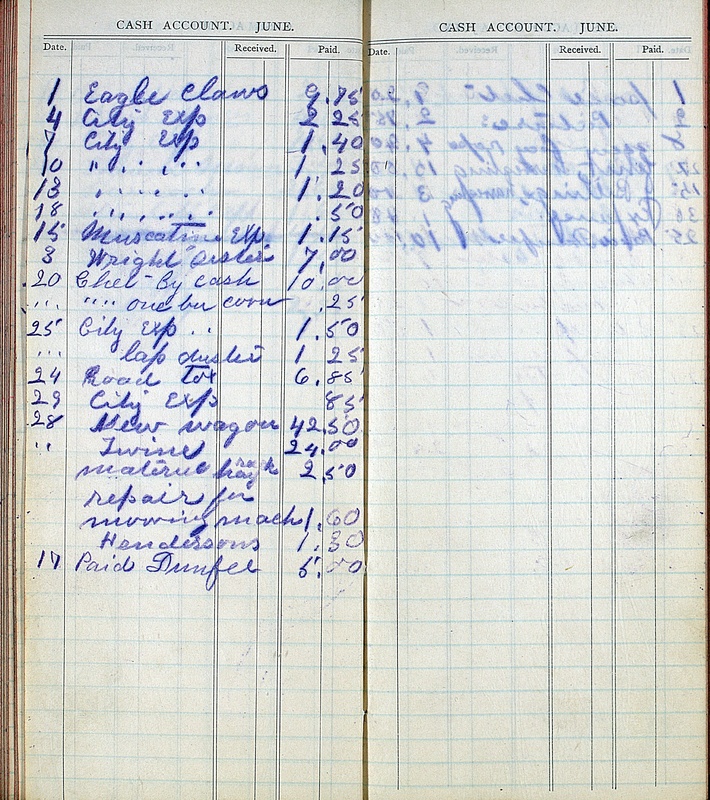 CASH ACCOUNT. JUNE.
Date. Received. Paid.
1 Eagle Claws 9.75
4 City Exp 2 25
7 City Exp 1.40
10 " . , . , . . 1 25
13 , . , . , . 1.20
18 , . , . , . , . .50
15 Muscatine Exp. 1.15
3 Wright 7.00
20 Chet By cash 10.00
" . " " one bu corn .25
25 City Exp . . 1.50
" . lap duster 1 25
24 Road Tax 6.85
29 City Exp 85
28 New wagon 42.50
" Twine 24.00
hay rack 2.50
repair for
mowing mach 1.60
Hendersons 1.30
17 Paid 5.00
CASH ACCOUNT. JUNE.
Date. Received. Paid.